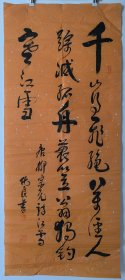 千山鳥飛絕萬徑人
踪滅孤舟蓑笠翁獨釣
寒江雪
唐柳宗元詩江雪
書